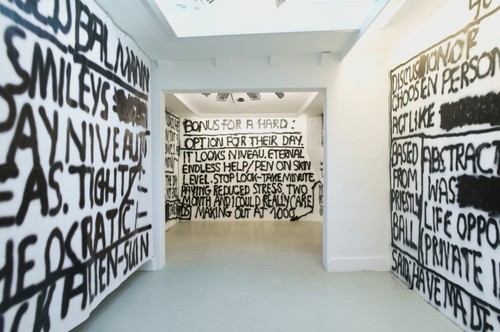 SED BALMAIN
SMILEYS
DAY NIVEAU
AS. TIGHT
THEOCRATIC
ALIEN-SKIN
BONUS FOR A HARD:
OPTION FOR THEIR DAY.
IT LOOKS NIVEAU. ETERNAL
ENDLESS HELP/PEN ON SKIN
LEVEL. STOP LOCK-TAKE MINUTE
PAYING REDUCED STRESS TWO
MONTH AND I COULD REALLY CARE
MAKING OUT AT 1000
DISCUS
CHOOSEN PERSON
ACT LIKE
BASED
FROM
PRIESTLY
BALL
ABSTRACT
WAS
LIFE OPPO
PRIVATE I
SAID, HAVE MADE